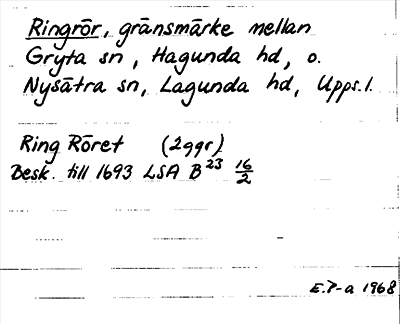 Ringrör, gränsmärke mellan
Gryta sn, Hagunda hd, o.
Nysätra sn, Lagunda hd, Upps. l.
Ring Röret (2ggr)
Besk. till 1693 LSA B 23 16/2
E.P-a 1968